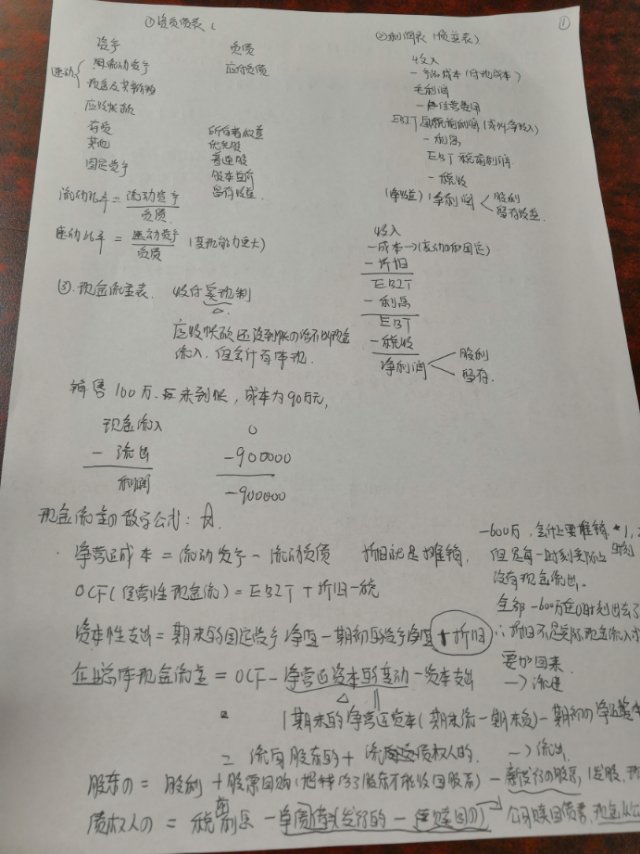 ①资负债表
资产 负债
速动 非流动资产 应付负债
现金及其等物
应收帐款
存货 所有者权益
其他 优先股
固定资产 普通股
股本盈余
留存收益
流动比率 = 流动资产 / 负债
速动比率 = 速动资产 / 负债 (变现能力更大)
②利润表(损益表)
收入
- 成本
毛利润
- 经营费用
EBIT 息税前利润
- 利息
EBT 税前利润
- 税收
(净收益) 净利润 < 股利 留存收益
收入
- 成本 → (变动和固定)
- 折旧
EBIT
- 利息
EBT
- 税收
净利润 < 股利 留存
③.现金流量表. 收付实现制
应收帐款还没到帐的话不叫现金
流入, 但会计有体现.
销售100万、未到帐, 成本为90万元,
现金流入 0
- 流出 -900000
利润 -900000
现金流量的数学公式:
净营运成本 = 流动资产 - 流动负债 折旧就是摊销
OCF(经营性现金流) = EBIT + 折旧 - 税
资本性支出 = 期末的固定资产净值 - 期初的资产净值 + 折旧
企业总体现金流量 = OCF - 净营运资本的变动 - 资本支出
= (期末的净营运资本(期末流 - 期末负) - 期初の净运资本
= 流向股东的 + 流向债权人的.
股东の = 股利 + 股票回购 - 新发行の股票
债权人の = 税前利息 - 净(发行的 - 赎回の) → 公司赎回债券, 现金
-600万, 会计上要摊销
但是每一时刻实际上
没有现金流出.
全部-600万在0时刻出去了
∴ 折旧不是实际现金流入
要加回来.
→ 流进
→ 流出
①